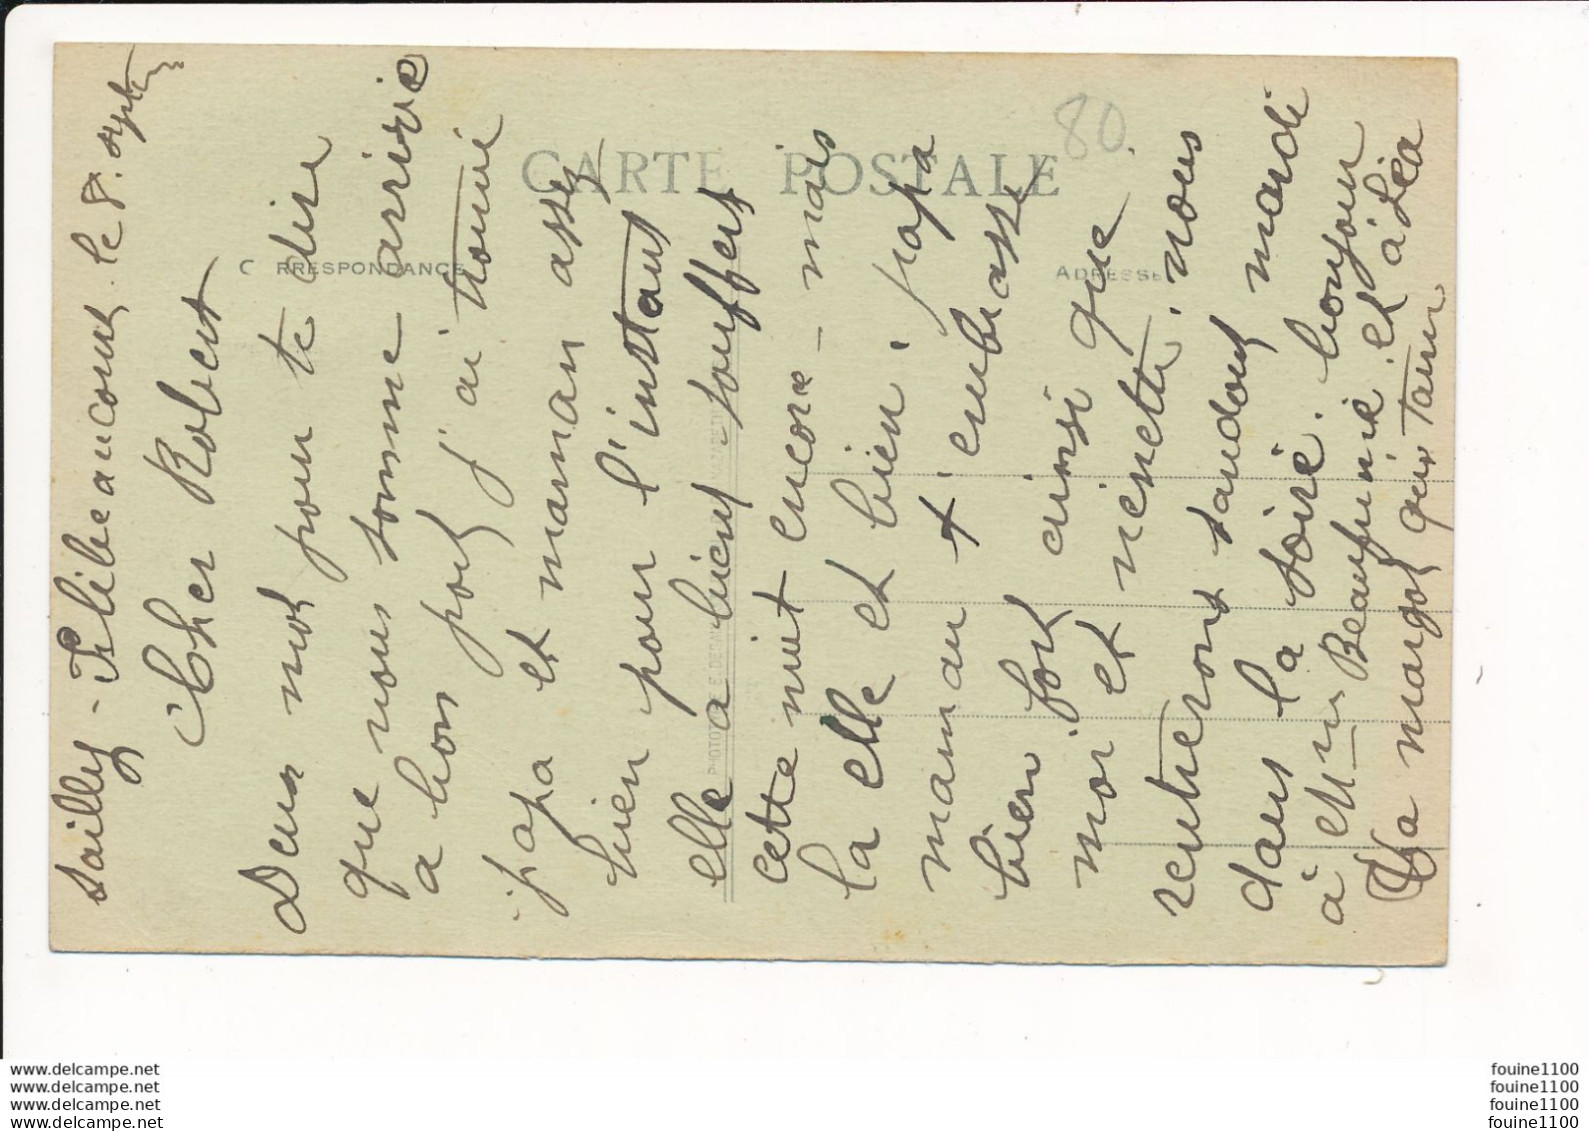 Sailly-Flibeaucourt le 8 sept
Cher Robert
Deux mot pour te dire
que nous somme arrivie
a bon port j'ai trouvé
papa et maman assez
bien pour l'instant
elle a bient souffert
cette nuit encore - mais
la elle et bien. papa
maman t'embrasse
bien fort ainsi que
moi et nénette. nous
rentrerons sandout mardi
dans la soiré. bonjour
à Mme Beaufumé et à Léa
Ta margot qui t'aime
CARTE POSTALE
CORRESPONDANCE
ADRESSE
80
www.delcampe.net
www.delcampe.net
www.delcampe.net
www.delcampe.net
fouine1100
fouine1100
fouine1100
fouine1100